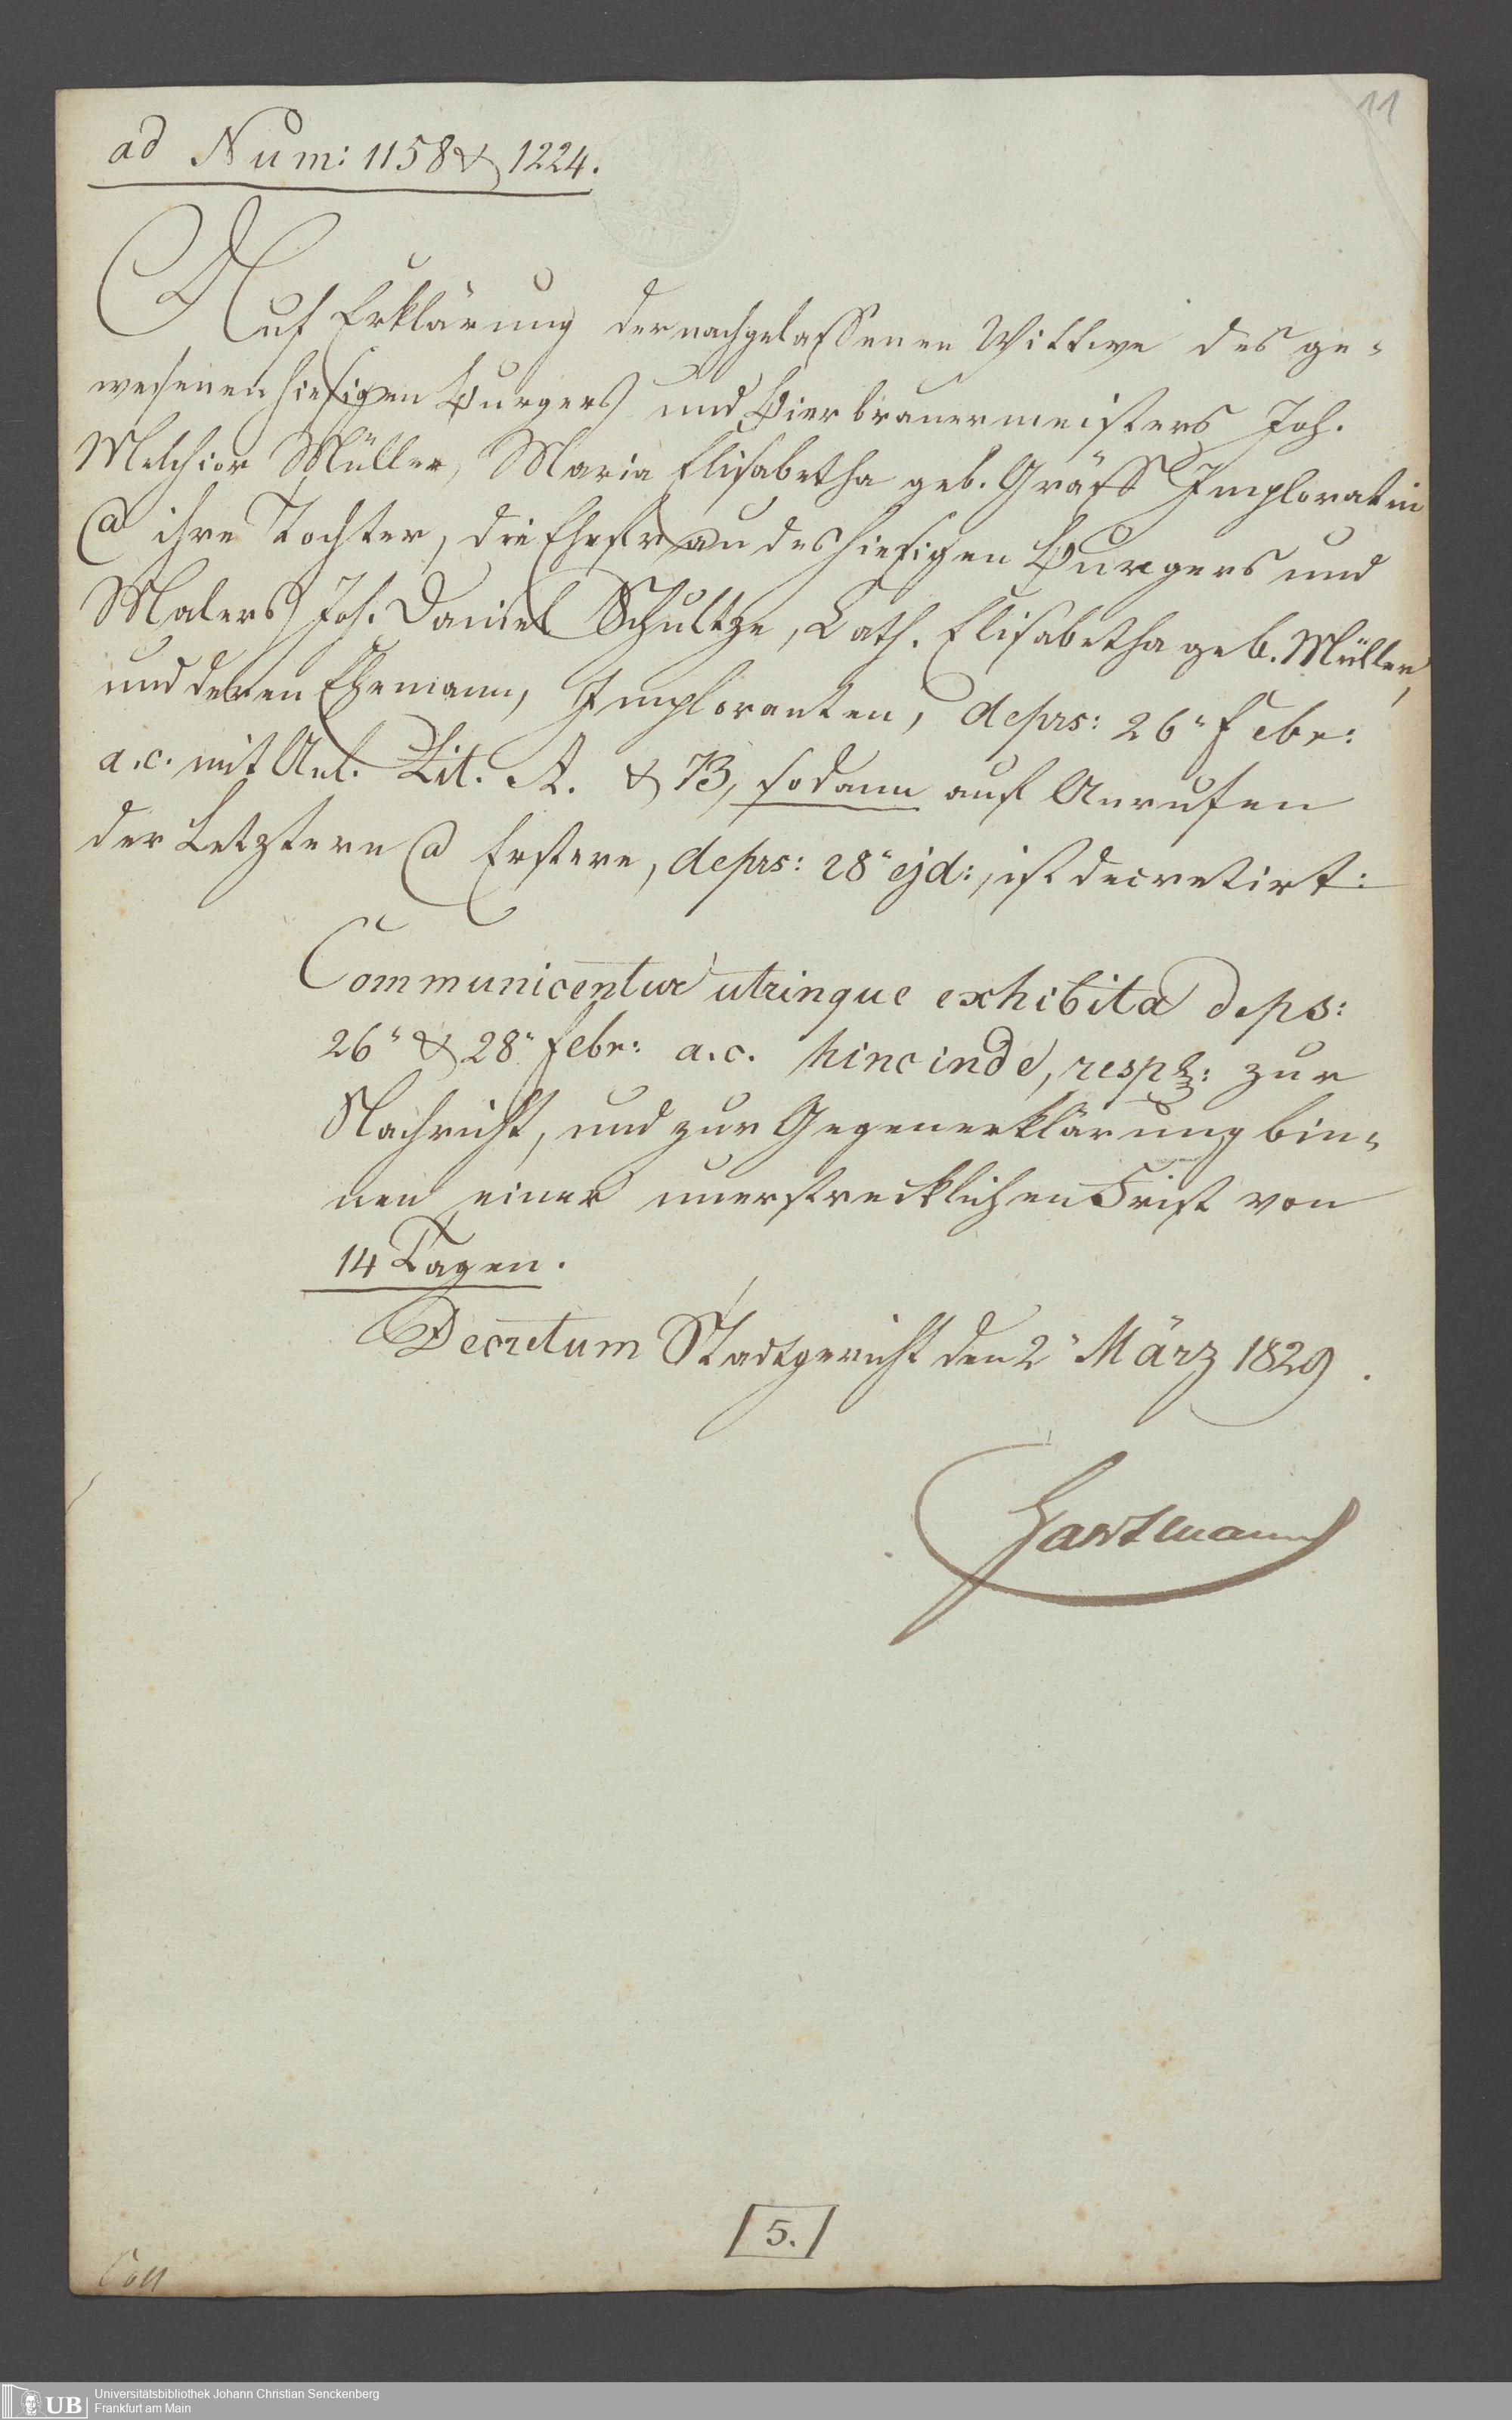 11
ad Num: 1158 & 1224.
Auf Erklärung der nachgelassenen Wittwe des ge-
wesenen hiesigen Burgers und Bierbrauermeisters Joh.
Melchior Müller, Maria Elisabetha geb. Gräff Imploratin
@ ihre Tochter, die Ehefrau des hiesigen Burgers und
Malers Joh. Daniel Schultze, Cath. Elisabetha geb. Müller,
und deren Ehemann, Imploranten, deprs: 26" Febr:
a. c. mit Anl. Lit. A. & B, sodann auf Anrufen
der Letztern @ Erstere, deprs: 28" ejd:, ist decretirt:
Communicentur utrinque exhibita deps:
26" & 28" Febr: a. c. hinc inde, resp: zur
Nachricht, und zur Gegenerklärung bin-
nen einer unerstrecklichen Frist von
14 Tagen.
Decretum Stadtgericht den 2" März 1829.
Hartmann
5.
Coll
Universitätsbibliothek Johann Christian Senckenberg
Frankfurt am Main
UB